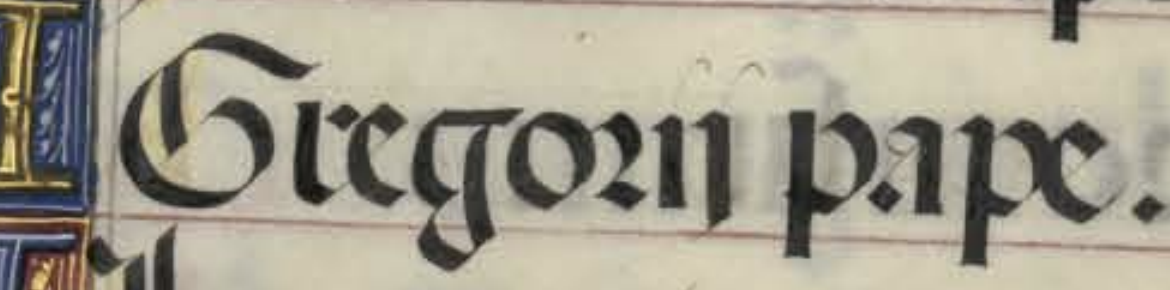 Gregorij pape.